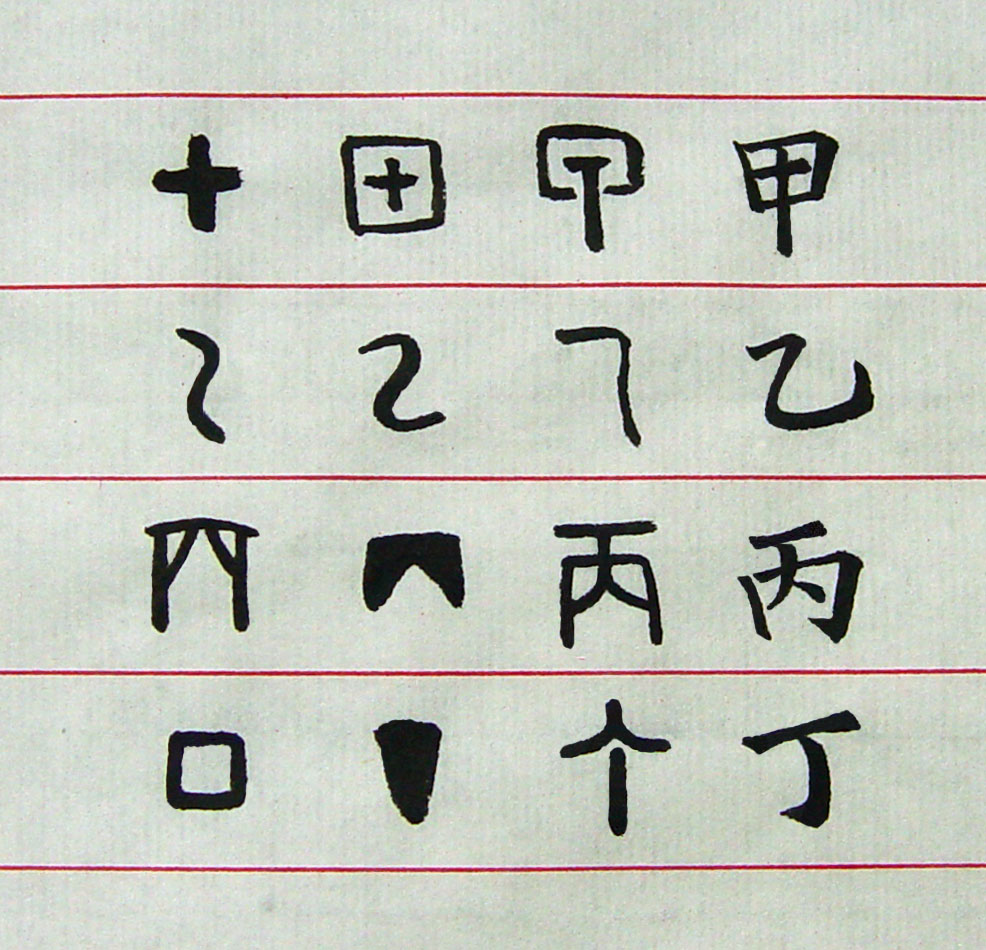 甲 甲 甲 甲
乙 乙 乙 乙
丙 丙 丙 丙
丁 丁 丁 丁